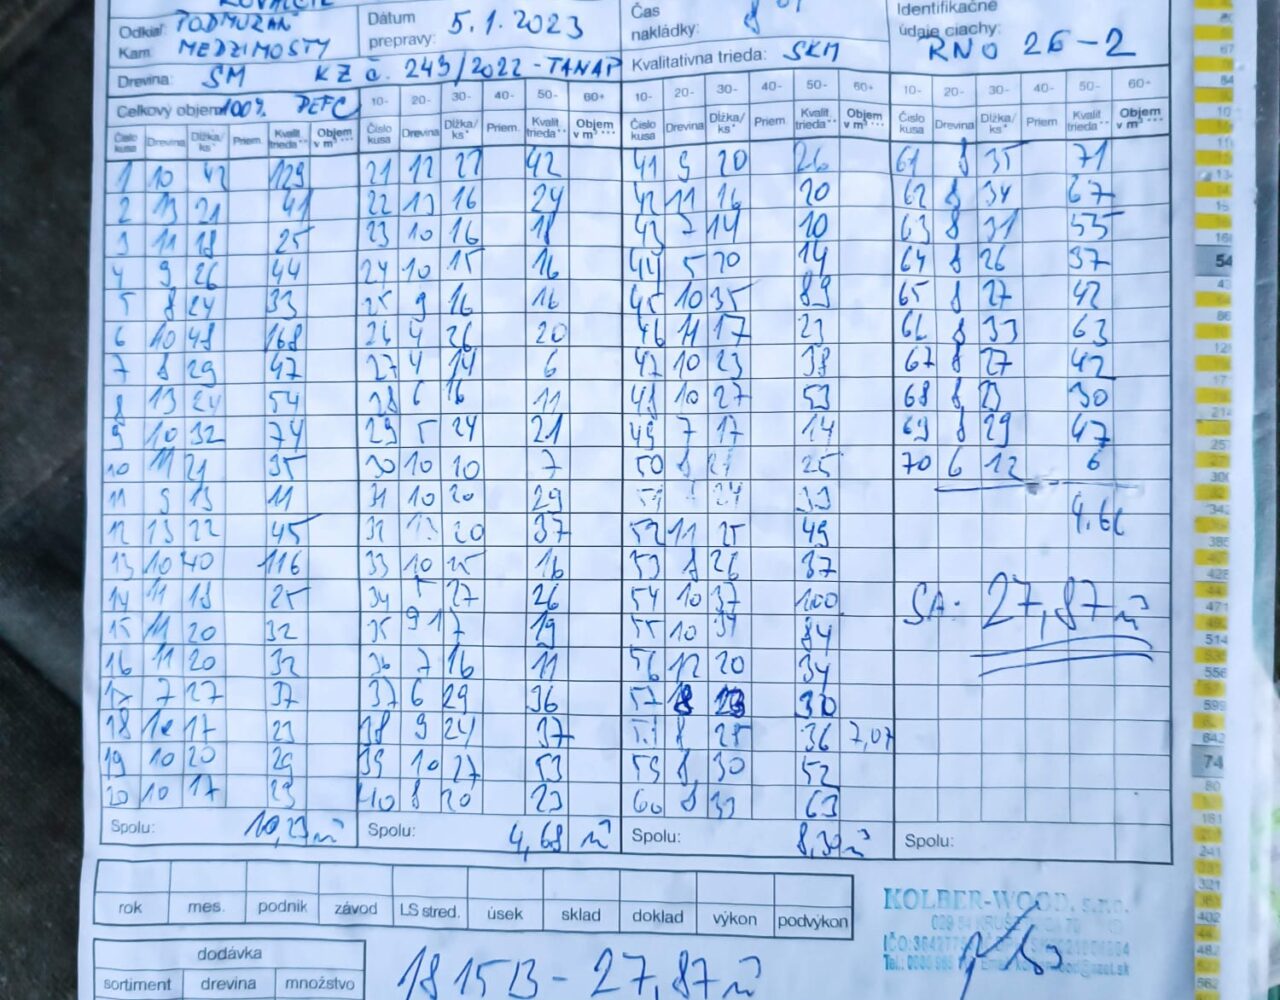 Odkiaľ: PODMURAŇ Dátum prepravy: 5.1.2023 Čas nakládky: Identifikačné údaje ciachy: RNO 26-2
Kam: MEDZIMOSTY
Drevina: SM KZ č. 243/2022 - TANAP Kvalitatívna trieda: SKM
Celkový objem 100% PEFC 10- 20- 30- 40- 50- 60+ 10- 20- 30- 40- 50- 60+ 10- 20- 30- 40- 50- 60+
Číslo kusa Drevina Dĺžka/ks* Priem. Kvalit trieda** Objem v m³*** Číslo kusa Drevina Dĺžka/ks* Priem. Kvalit trieda** Objem v m³*** Číslo kusa Drevina Dĺžka/ks* Priem. Kvalit trieda** Objem v m³*** Číslo kusa Drevina Dĺžka/ks* Priem. Kvalit trieda** Objem v m³***
1 10 42 129 21 12 27 42 41 9 20 26 61 8 35 71
2 13 21 41 22 13 16 24 42 11 16 20 62 8 34 67
3 11 18 25 23 10 16 18 43 7 14 10 63 8 31 55
4 9 26 44 24 10 15 16 44 5 20 14 64 8 26 37
5 8 24 33 25 9 16 16 45 10 35 89 65 8 27 42
6 10 48 168 26 4 26 20 46 11 17 23 66 8 33 63
7 8 29 47 27 4 14 6 47 10 23 38 67 8 27 42
8 13 24 54 28 6 16 11 48 10 27 53 68 8 23 30
9 10 32 74 29 5 24 21 49 7 17 14 69 8 29 47
10 11 21 35 30 10 10 7 50 8 21 25 70 6 12 6
11 9 13 11 31 10 20 29 51 24 33
12 13 22 45 32 13 20 37 52 11 25 49 4,66
13 10 40 116 33 10 25 16 53 8 26 37
14 11 18 25 34 5 27 26 54 10 37 100 SA: 27,87 m³
15 11 20 32 35 9 17 19 55 10 34 84
16 11 20 32 36 7 16 11 56 12 20 34
17 7 27 37 37 6 29 36 57 8 23 30
18 10 17 23 38 9 24 37 58 8 25 36 7,07
19 10 20 29 39 10 27 53 59 8 30 52
20 10 17 23 40 8 20 23 60 8 33 63
Spolu: 10,23 m³ Spolu: 4,68 m³ Spolu: 8,30 m³ Spolu:
rok mes. podnik závod LS stred. úsek sklad doklad výkon podvýkon
KOLBER-WOOD, s.r.o.
dodávka
sortiment drevina množstvo
18 15 13 - 27,87 m³